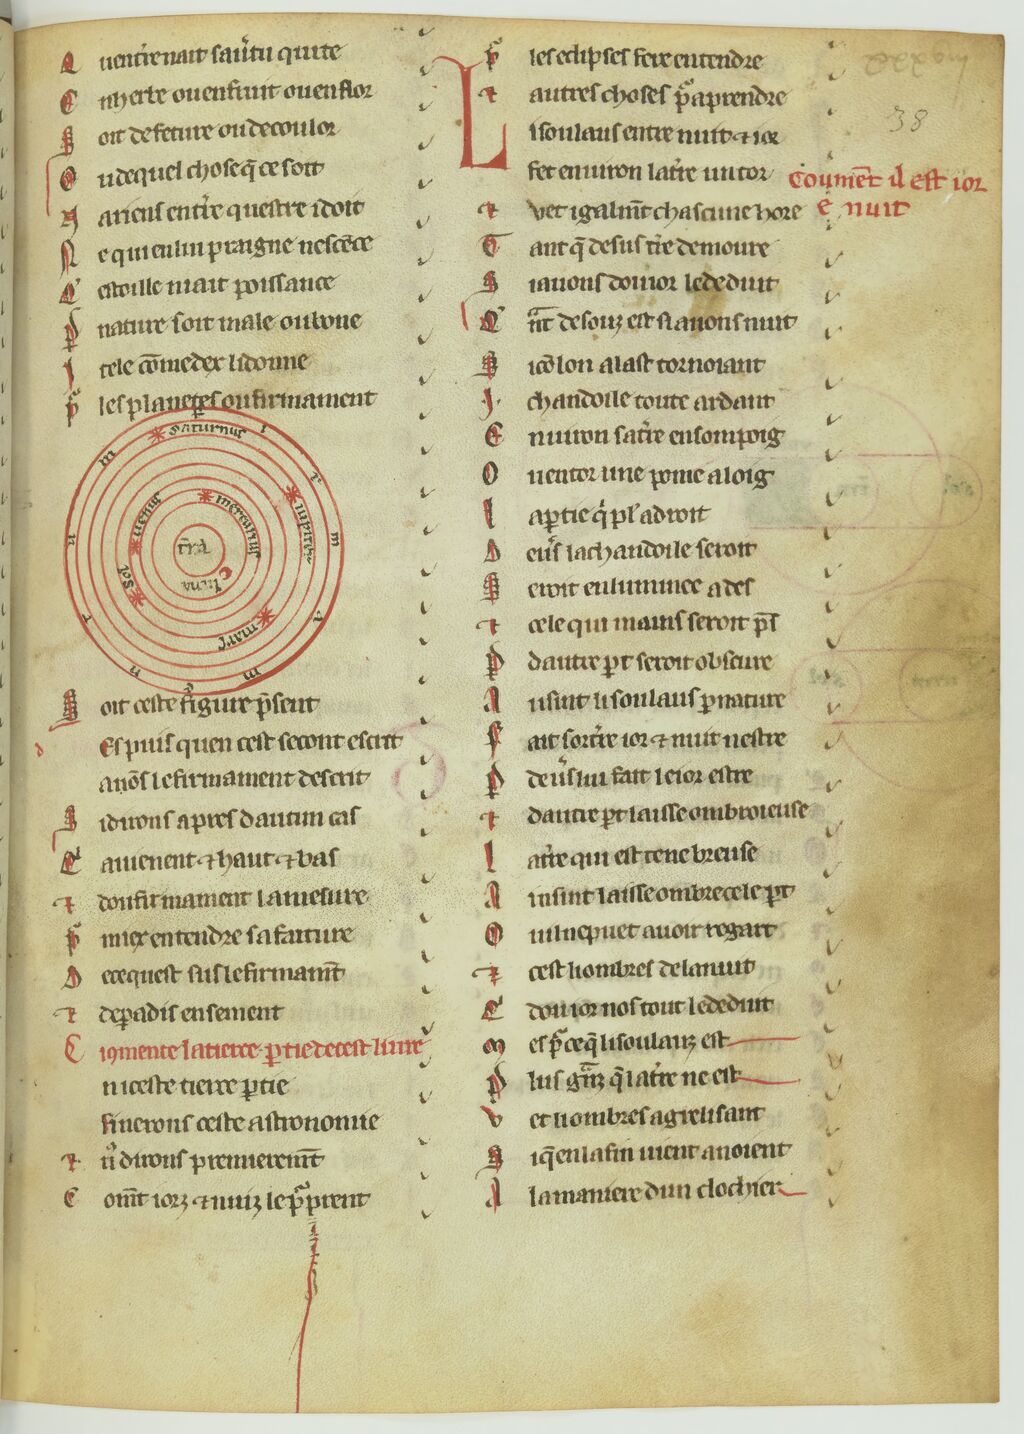 A uentrenait sa utu quite
E nherbe ou en fruit ou en flor
S oit de feture ou de coulor
O u de quel chose q̃ ce soit
N e qui en lui praigne nescẽce
C estoille nait poissance
P nature soit male ou bone
I tele cõme dex li done
P les planetes ou firmament
saturnus
iupiter
mars
sol
uenus
mercurius
luna
t̃ra
f i r m a m e n t u m
S oit ceste figure p̃sent
d Es puis quen cest secont escrit
auõs le firmament descrit
S i dirons apres dautun cas
C auienent ⁊ haut ⁊ bas
⁊ dou firmament la mesure
P miex entendre sa faiture
D ece quest sus le firmam̃t
⁊ de paradis ensement
C i q̃mente la tierce ptie de cest liure
n i ceste tierce ptie
finerons ceste astronomie
⁊ u dirons premierem̃t
C om̃t iorz ⁊ nuiz le prẽprent
P les eclipses fere entendre
⁊ autres choses p aprendre
L i soulaus entre nuit ⁊ ior
fet enuiron la t̃re un tor
Coumẽt il est ior
e nuit
38
⁊ vet igalm̃t chascune hore
T ant q̃ desus t̃re demoure
S i auons dou ior le deduit
C ãt desouz est si auons nuit
S icõ lon alast tornoiant
I . chandoile toute ardant
E nuiron sa t̃re en son poig
O u entor une pome a loig
l a ptie q̃ pl' adroit
D euers la chandoile seroit
S eroit enluminee ades
⁊ cele qui mains seroit p̃s
P dautre pt seroit obscure
A insint li soulaus p nature
F ait sor t̃re ior ⁊ nuit nestre
P deuers lui fait le ior estre
⁊ dautre pt laisse ombroieuse
l a t̃re qui est tenebreuse
A insint laisse ombre cele pt
O u il ne puet auoir regart
⁊ cest li ombres de la nuit
C dou ior nos tout le deduit
M es p ce q̃ li soulauz est
P lus g̃nz q̃ la t̃re ne est
V et li ombres agrelisant
S i q̃ en la fin uient a noient
A la maniere dun clochier